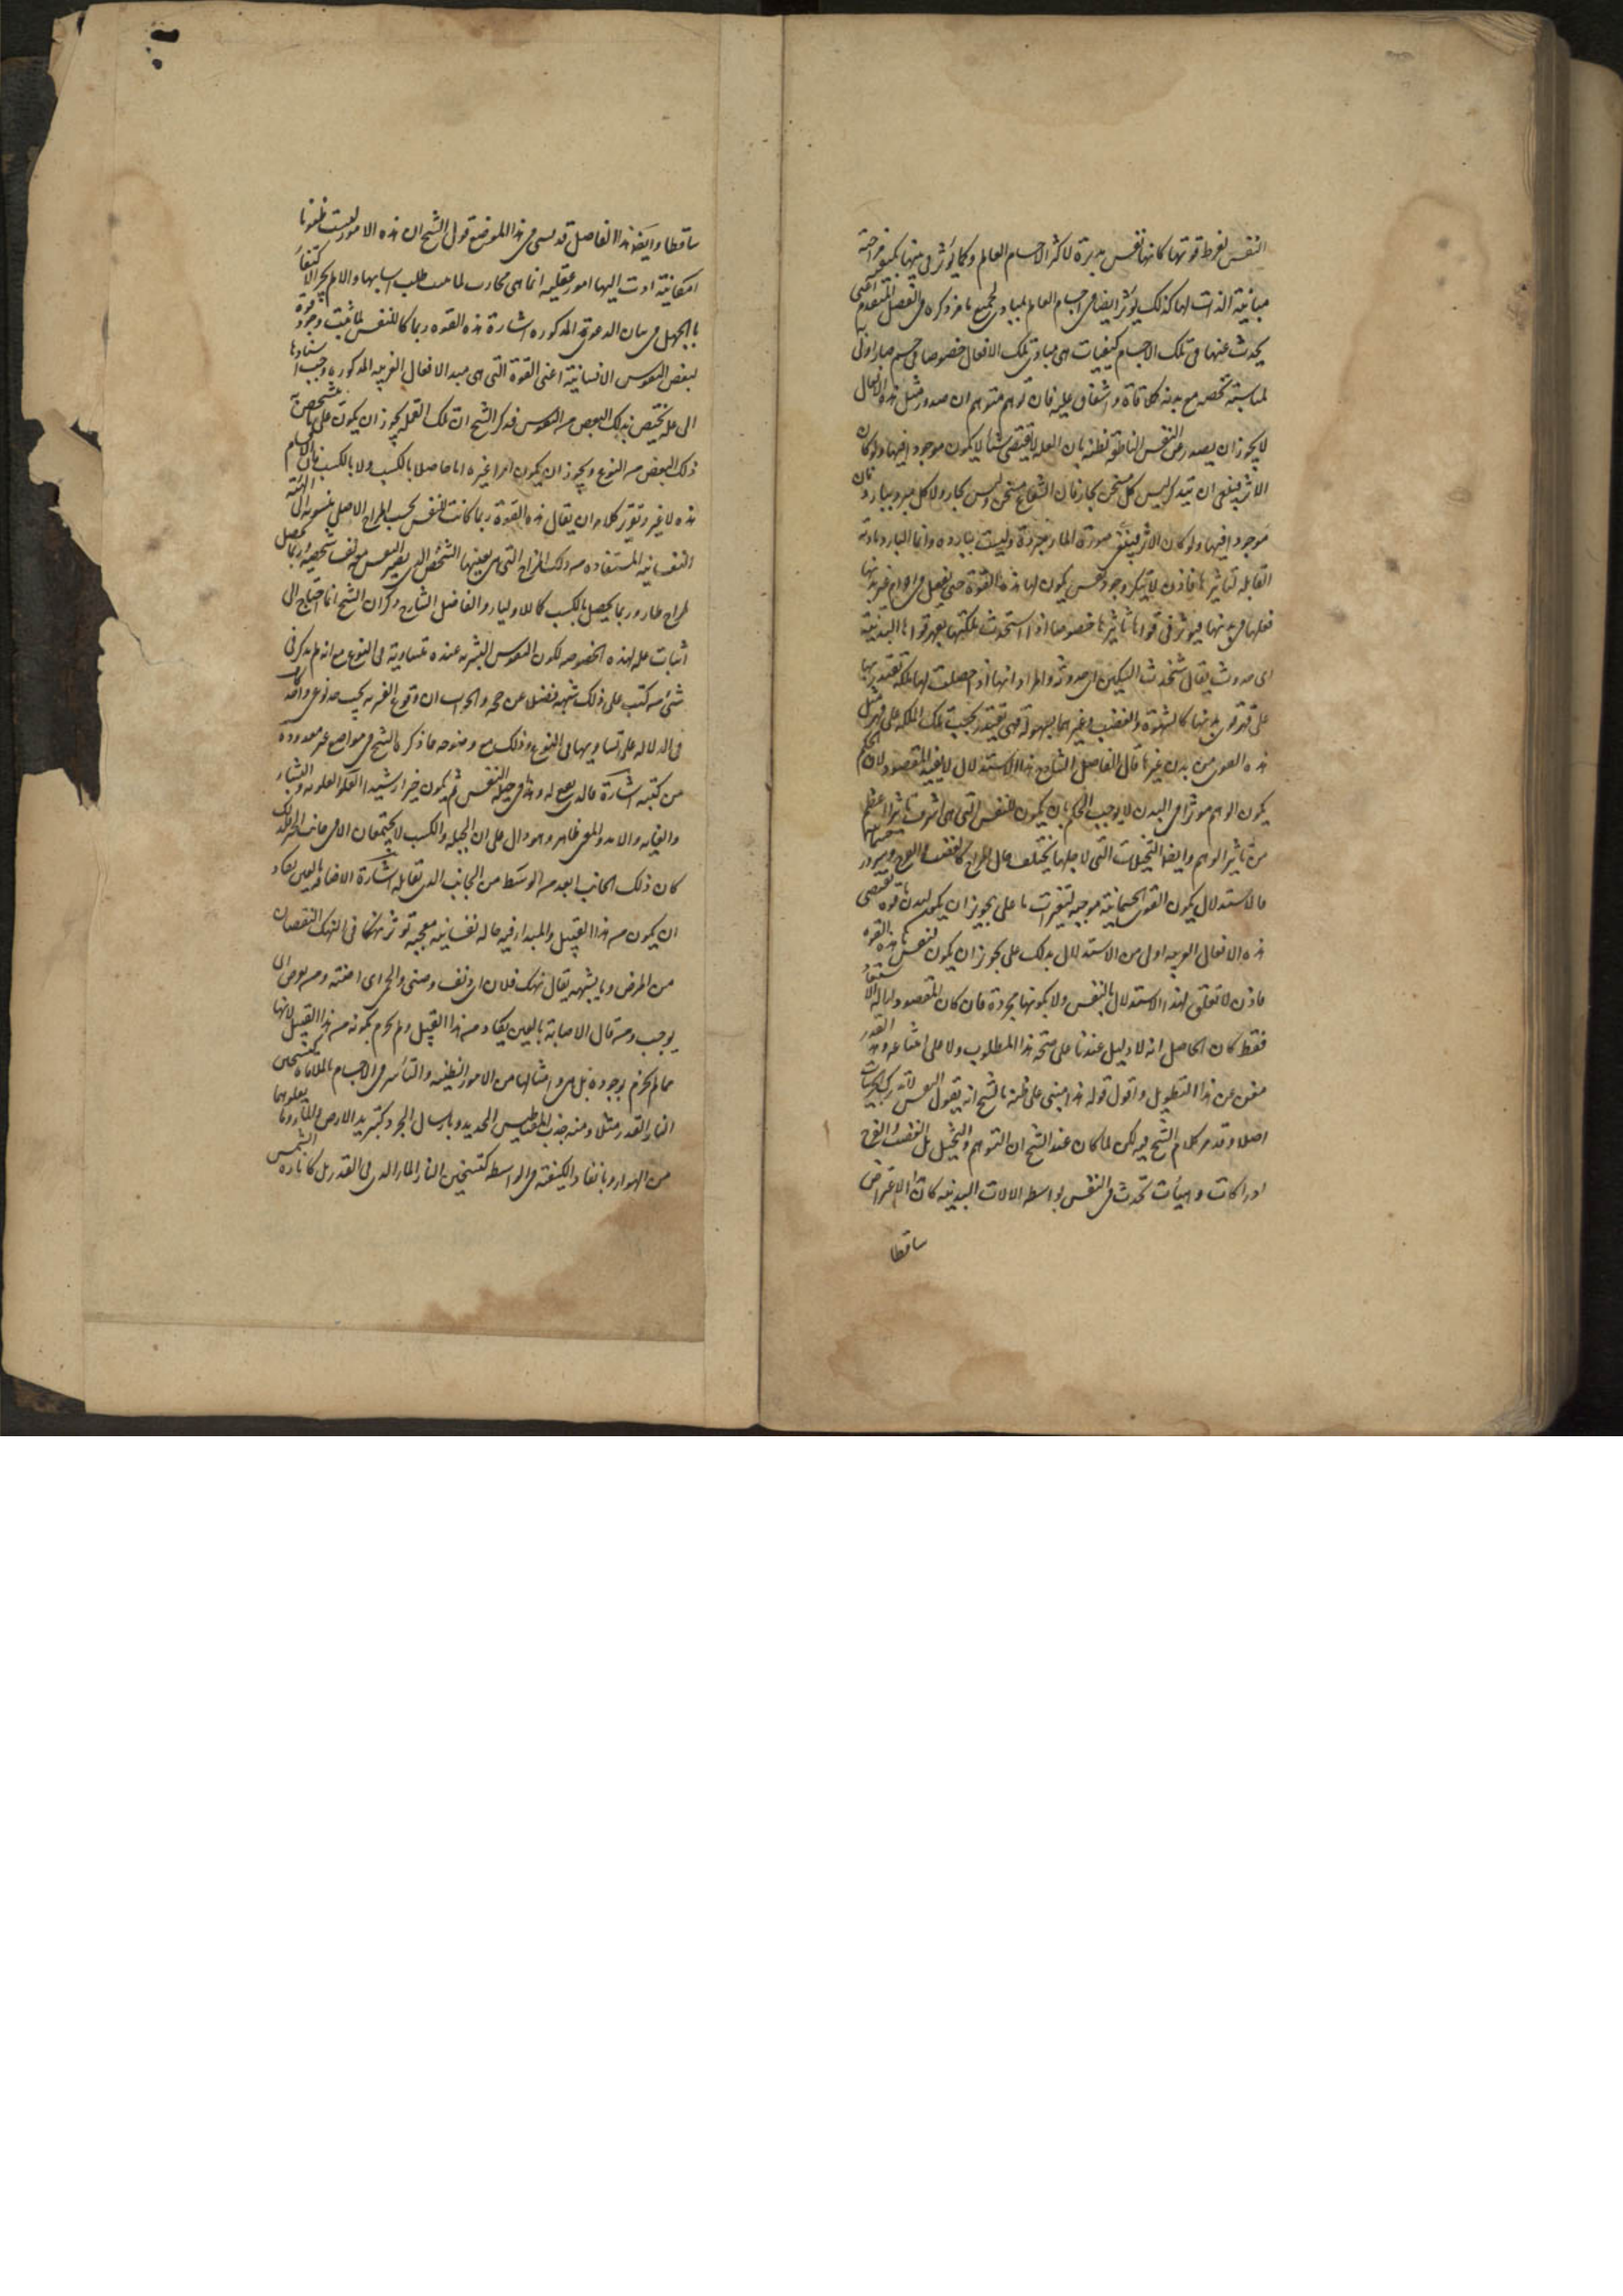 النفس لفرط قوتها كانها نفس مدبرة لاكثر الاجسام العالم وكما يؤثر في بدنها بكيفية مزاجية
مباينة الذات لها كذلك يؤثر ايضا في اجسام العالم لمبادى لجميع ما مر ذكره في الفصل المتقدم اعنى
يحدث عنها في تلك الاجسام كيفيات هى مبادى تلك الافعال خصوصا في جسم صار اولى به
لمناسبة تخصه مع بدنه كملاقاة او اشفاق عليه فان توهم متوهم ان صدور مثل هذه الافعال
لا يجوز ان يصدر من النفس الناطقة لظنه بان العلة لا تقتضى شيئا لا يكون موجودا فيها ولو كان
الاثر فينبغى ان يتذكر ليس كل مسخن بحار فان الشعاع مسخن وليس بحار ولا كل مبرد ببارد فان
موجودا فيها ولو كان الاثر صورة الماء مبردة وليست بباردة وانما البارد مادته
القابلة لتاثيرها فاذن لا يستنكر وجود نفس يكون لها هذه القوة حتى تفعل في اجرام غير بدنها
فعلها في بدنها فيؤثر في قواها تاثيرها خصوصا اذا استحدث ملكتها بقهر قواها البدنية
اى حدوث يقال شحذت السكين اى حددته والمراد انها اذا حصلت لها ملكة تقتدر بها
على قهر قوى بدنها كالشهوة والغضب وغيرهما بسهولة فهى تقتدر بحسب تلك الملكة على قهر مثل
هذه القوى من بدن غيرها قال الفاضل الشارح هذا الاستدلال لا يفيد المقصود لان الحكم
بكون الوهم موثرا في البدن لا يوجب الحكم بان يكون للنفس التى هى اشرف تاثيرا اعظم
من تاثير الوهم وايضا التخيلات التى لاجلها يختلف حال المزاج كالغضب والفرح
فالاستدلال بكون القوى الجسمانية موجبة لتغيرات ما على تجويز ان يكون لبدن ما قوة تقتضى
هذه الافعال الغريبة اولى من الاستدلال بذلك على تجويز ان يكون لنفس ما هذه القوة
فاذن لا تعلق لهذا الاستدلال بالنفس ولا بكونها مجردة فان كان المقصود ازالة الاستبعاد
فقط كان الحاصل انه لا دليل عندنا على صحة هذا المطلوب ولا على امتناعه وهذا القدر
مغن عن هذا التطويل واقول قوله هذا مبنى على ظنه بالشيخ انه يقول النفس لا تدرك الجزئيات
اصلا وقد مر كلام الشيخ فيه لكن لما كان عند الشيخ ان التوهم والتخيل بل الغضب والفرح
ادراكات وهيئات تحدث في النفس بواسطة الالات البدنية كان الاعتراض
ساقطا
ساقطا وايضا هذا الفاضل قد نسى في هذا الموضع قول الشيخ ان هذه الامور ليست ظنونا
امكانية ادت اليها امور عقلية انما هى تجارب لما ثبت طلب اسبابها والا لم يجز الاكتفاء
بالجهل في بيان الدعوى المذكورة اشارة هذه القوة ربما كان للنفس لما ثبت وجود قوة
لبعض النفوس الانسانية اعنى القوة التى هى مبدء الافعال الغريبة المذكورة وجب اسنادها
الى علة تختص بذلك البعض من النفوس فذكر الشيخ ان تلك العلة يجوز ان يكون
ذلك البعض من النوع ويجوز ان يكون امرا غيره اما حاصلا بالكسب ولا بالكسب فان الاقسام
هذه لا غير وتقرير كلامه ان يقال هذه القوة ربما كانت للنفس بحسب المزاج الاصلى منسوبة الى الهيئة
النفسانية المستفادة من ذلك المزاج التى هى بعينها التشخص الذى يصير النفس معه نفسا شخصية وربما تحصل
لمزاج طار وربما يحصل بالكسب كما للاولياء والفاضل الشارح ذكر ان الشيخ انما احتاج الى
اثبات علة لهذه الخصوصية لكون النفوس البشرية عنده متساوية في النوع مع انه لم يذكر في
شئ من كتبه على ذلك شبهة فضلا عن حجة والجواب ان وقوع النفوس البشرية تحت حد نوعى واحد
في الدلالة على تساويها في النوع وذلك مع وضوحه مما ذكره الشيخ في مواضع غير معدودة
من كتبه اشارة فالذى يقع له هذا في جبلة النفس ثم يكون خيرا رشيدا
والغاية والامد والمعنى ظاهر وهو دال على ان الجبلة والكسب لا يجتمعان الا في جانب الخير فلذلك
كان ذلك الجانب ابعد من الوسط من الجانب الذى تقابله اشارة الاصابة بالعين يكاد
ان يكون من هذا القبيل والمبدا فيه حالة نفسانية معجبة تؤثر نهكا في النهك النقصان
من المرض وما يشبهه يقال نهك فلان اى دنف وضنى والحمى اى اضنته ومن يفرض ان
يوجب ومن قال الاصابة بالعين يكاد من هذا القبيل ولم يجزم بكونه من هذا القبيل لانها
مما لم يجزم بوجوده بل هى وامثالها من الامور الظنية والتاثير في الاجسام بالملاقاة كتسخين
النار القدر مثلا ومنه جذب المغناطيس الحديد وبارسال الجزء وكتبريد الارض والماء ما يعلوهما
من الهواء وبانفاذ الكيفية في الواسطة كتسخين النار الماء الذى في القدر بل كانارة الشمس